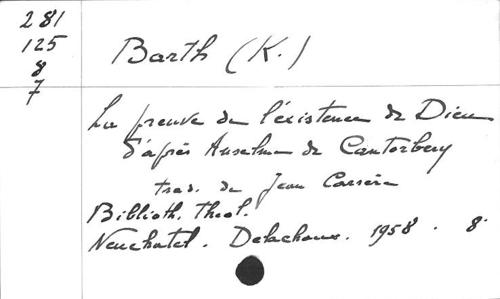 281
125
8
7
Barth (K.)
La preuve de l'existence de Dieu
d'après Anselme de Cantorbery
trad. de Jean Carrère
Biblioth. Theol.
Neuchatel. Delachaux. 1958. 8°